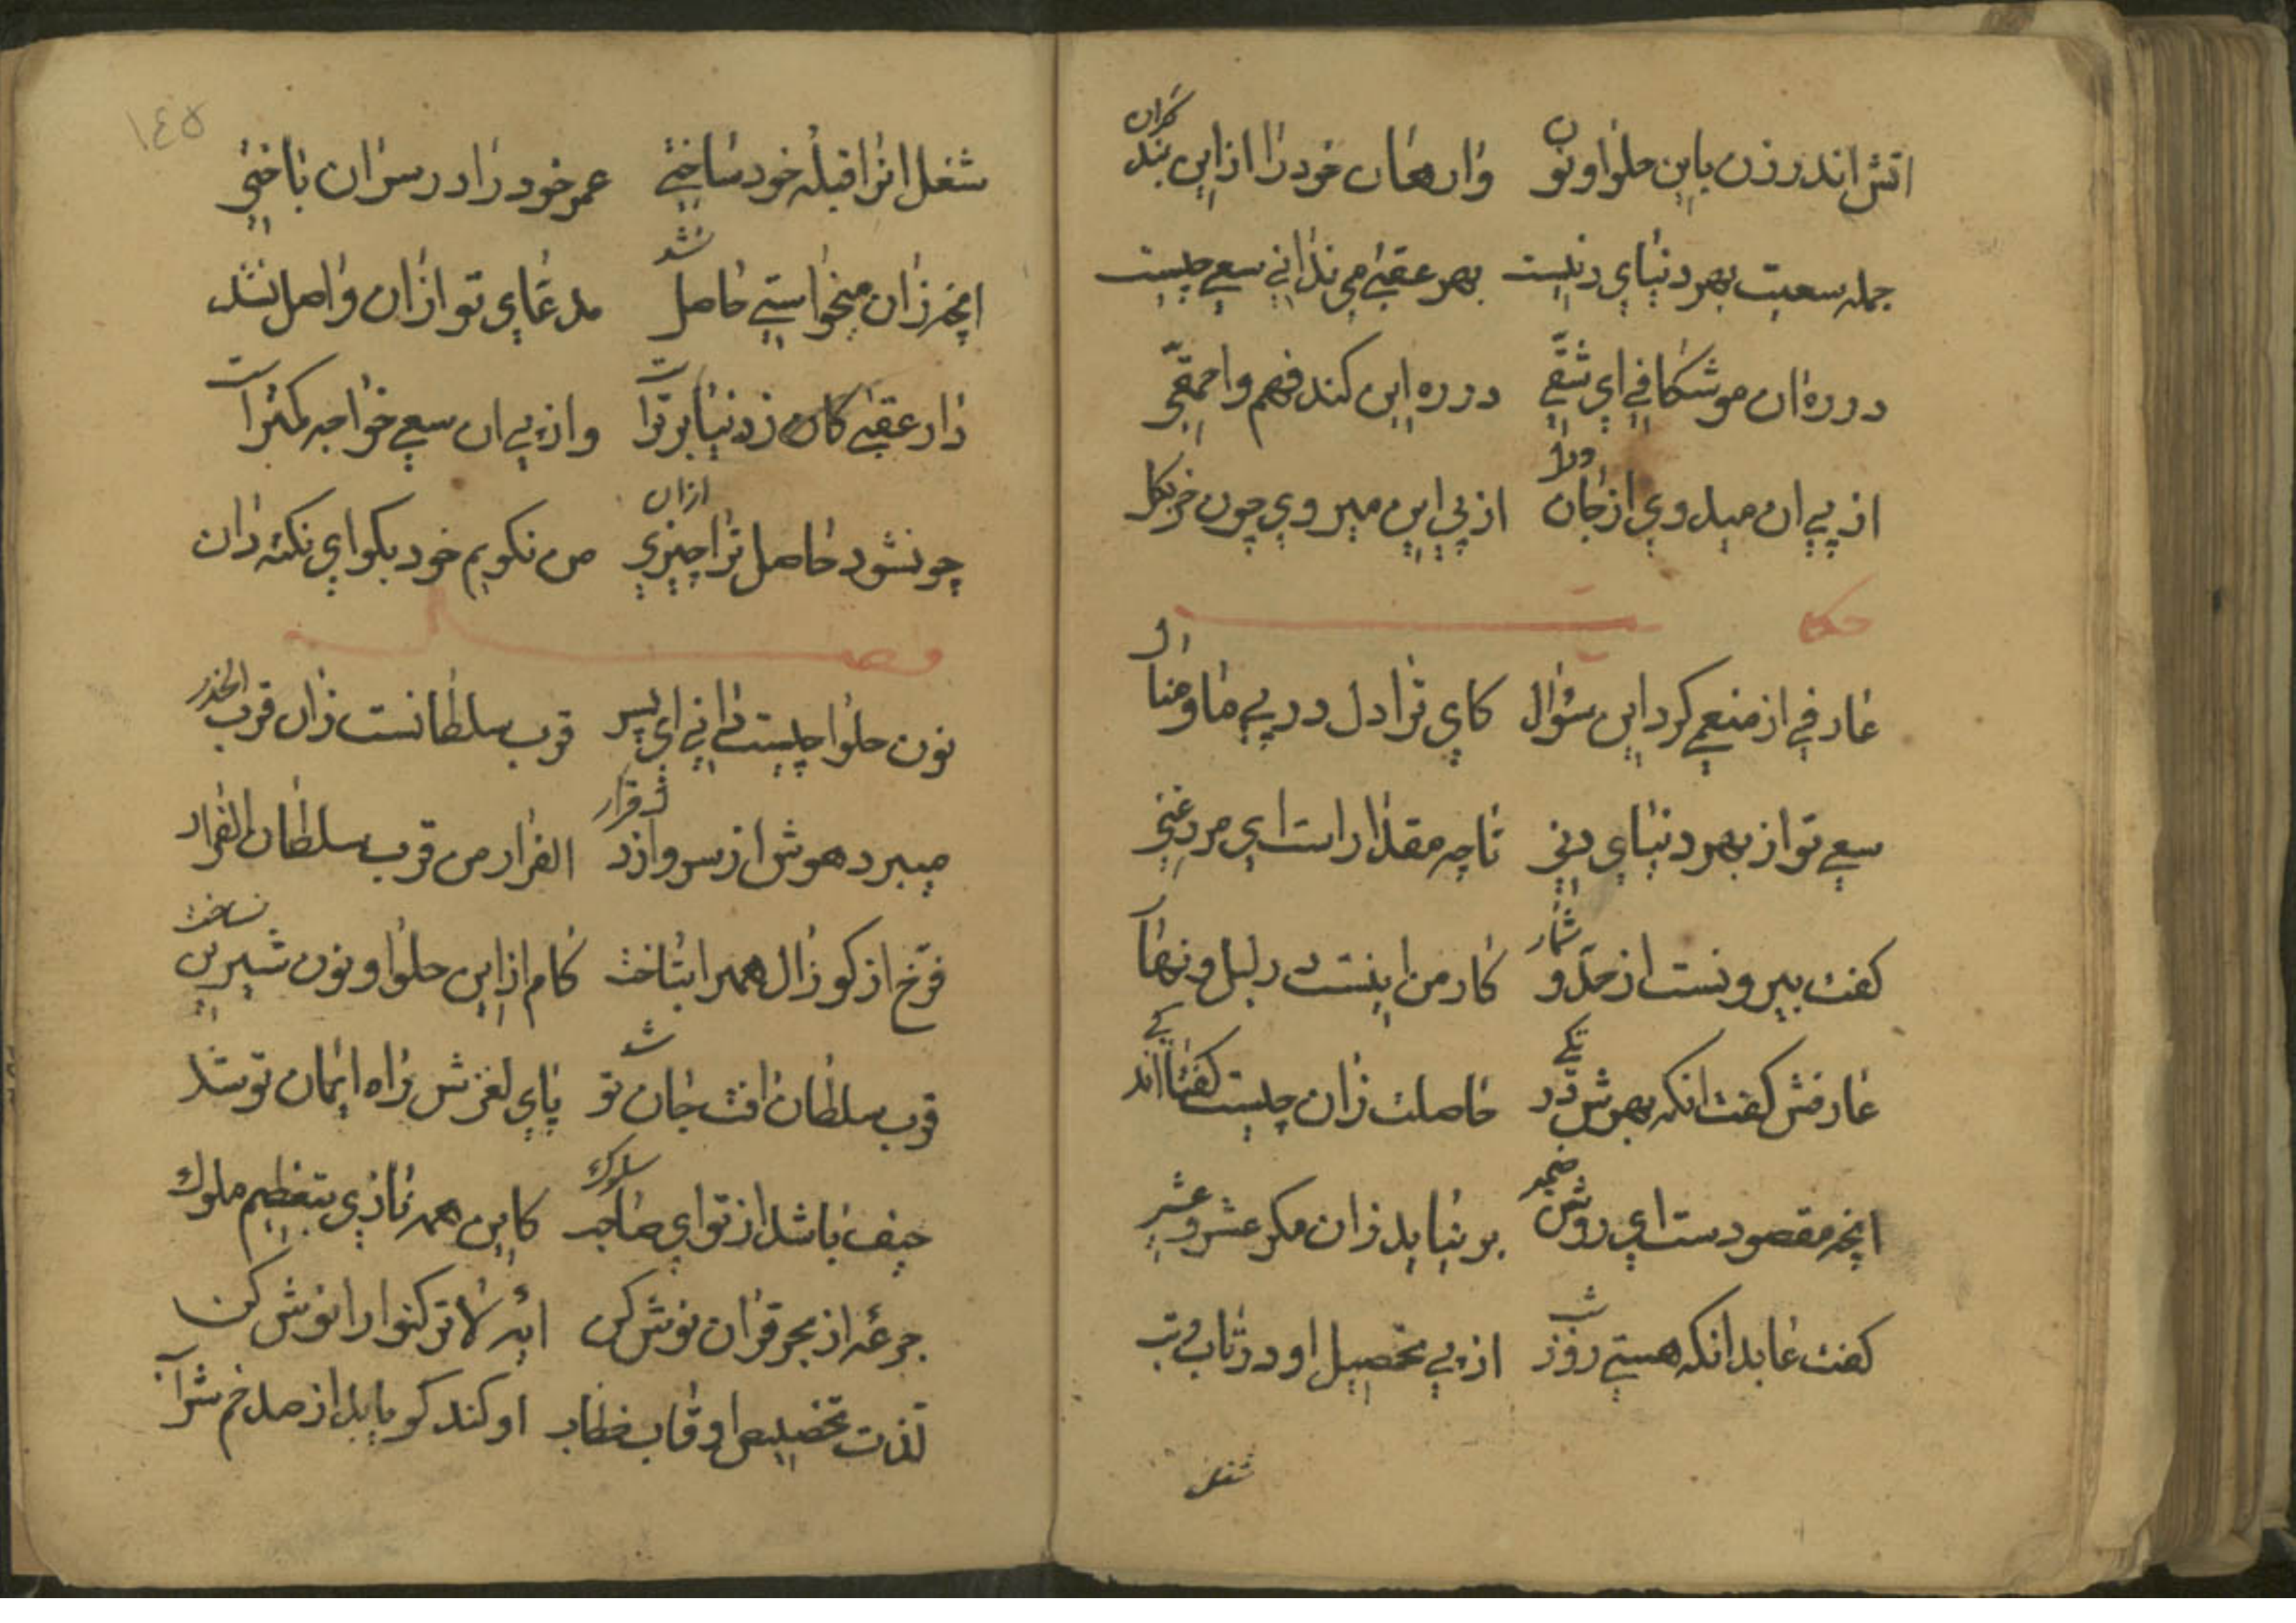 اتش اندر زن باین حلوا و نون وارهان خود را ازین بند کران
جمله سعیت بهر دنیای دنیست بهر عقبی می ندانی سعی چیست
در ره ان موشکافی ای شقی در ره این کند فهم و احمقی
از پی ان میدوی از جان ودل از پی این میروی چون خر بکل
حکایت
عارفی از منعمی کرد این سؤال کای ترا دل در پی مال و منال
سعی تو از بهر دنیای دنی تا چه مقدار است ای مرد غنی
کفت بیرونست از حد و شمار کار من اینست در لیل و نهار
عارفش کفت انکه بهرش در تکی حاصلت زان چیست کفتا اندکی
انچه مقصودست ای روشن ضمیر بر نیاید زان مکر عشر عشیر
کفت عابد انکه هستی روز وشب از پی تحصیل او در تاب و تب
شغل
١٤٥
شغل انرا قبلهٔ خود ساختی عمر خود را در سر ان باختی
انچه زان میخواستی حاصل نشد مدعای تو ازان واصل نشد
دار عقبی کان ز دنیا برترست وز پی ان سعی خواجه کمترست
چو نشود حاصل ترا چیزی ازان من نکویم خود بکو ای نکته دان
فصل
نون حلوا چیست دانی ای پسر قرب سلطانست زان قرب الحذر
میبرد هوش از سر و از دل قرار الفرار من قرب سلطان الفرار
فرخ انکو زال همرا بتاخت کام ازین حلوا و نون شیرین نساخت
قرب سلطان افت جان تو شد پای لغزش راه ایمان تو شد
حیف باشد از تو ای صاحب سلوک کاین همه نازی بتعظیم ملوک
جرعه از بحر قران نوش کن ایهٔ لا ترکنوا را نوش کن
لذت تخصیص اوقات خطاب او کند کو یابد از صد خم شراب